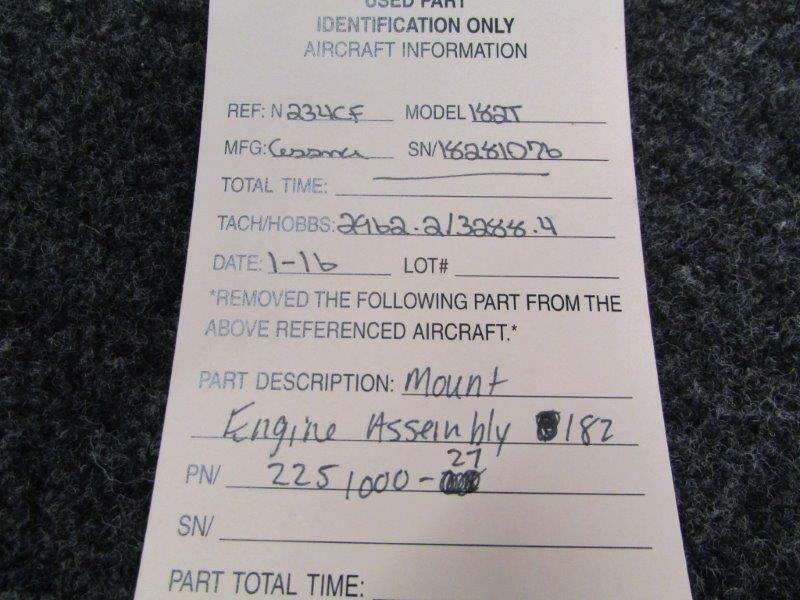 USED PART
IDENTIFICATION ONLY
AIRCRAFT INFORMATION
REF: N 234CF MODEL 182T
MFG: Cessna SN/ 18281076
TOTAL TIME:
TACH/HOBBS: 2962.2/3288.4
DATE: 1-16 LOT#
*REMOVED THE FOLLOWING PART FROM THE
ABOVE REFERENCED AIRCRAFT.*
PART DESCRIPTION: Mount
Engine Assembly 182
PN/ 2251000-27
SN/
PART TOTAL TIME: